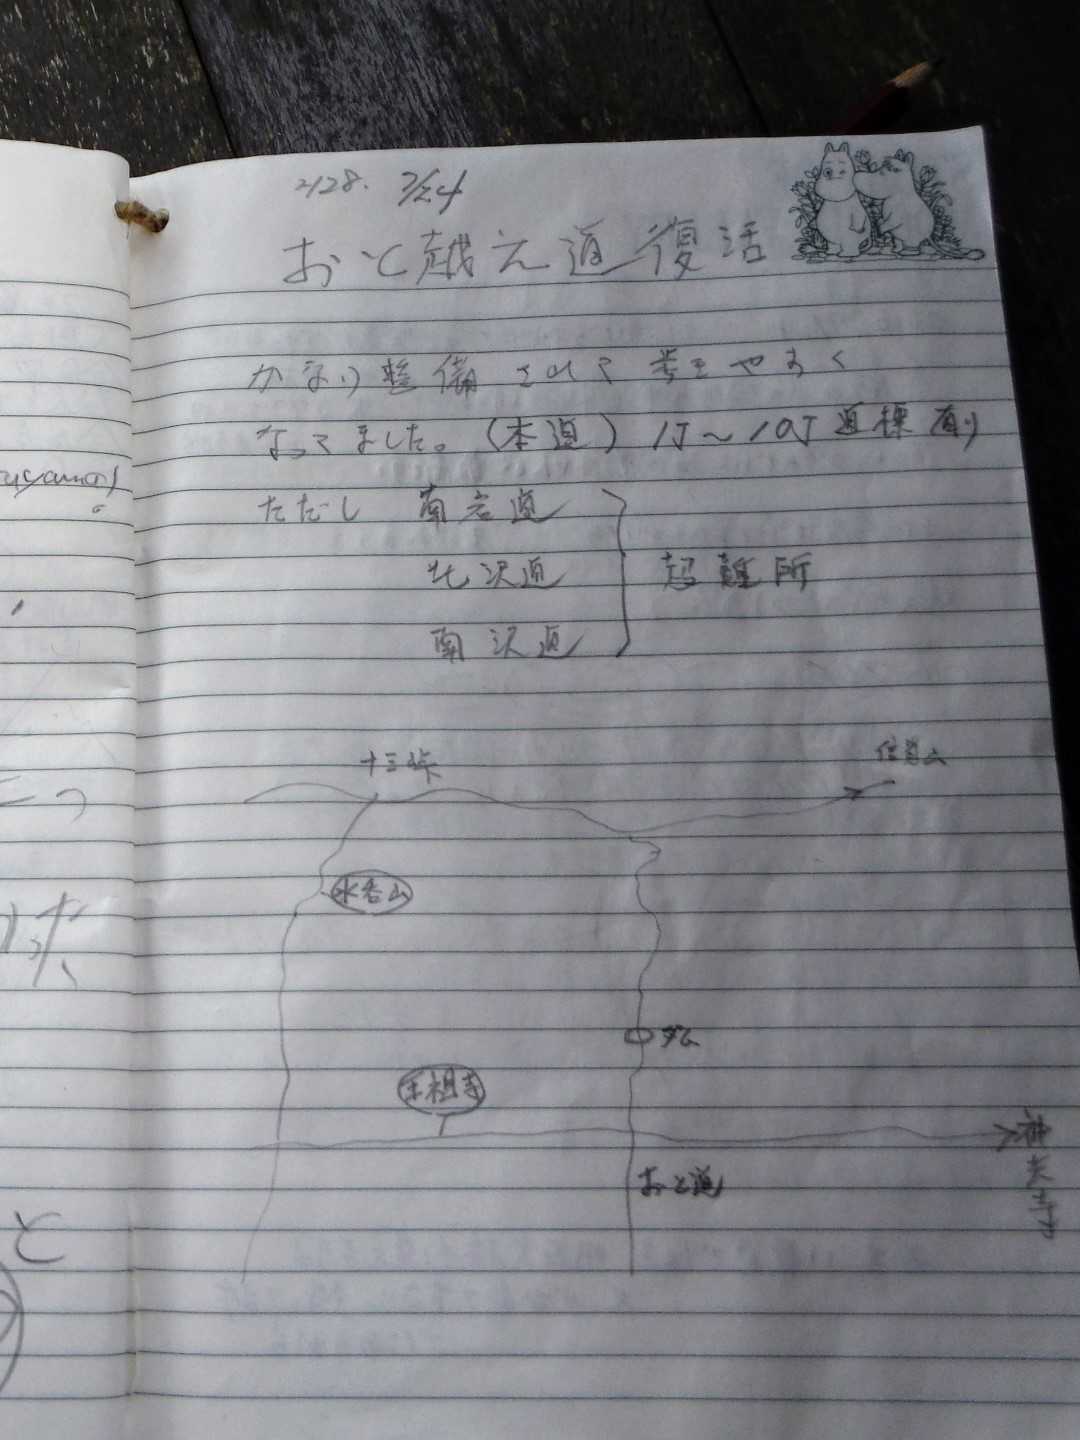 H28. 7/24
おと越え道復活
かなり整備されて歩きやすく
なってました。(本道) 1丁〜10丁道標有り
ただし 南岩道
北沢道 超難所
南沢道
十三峠
信貴山
水呑山
ダム
おと道
と